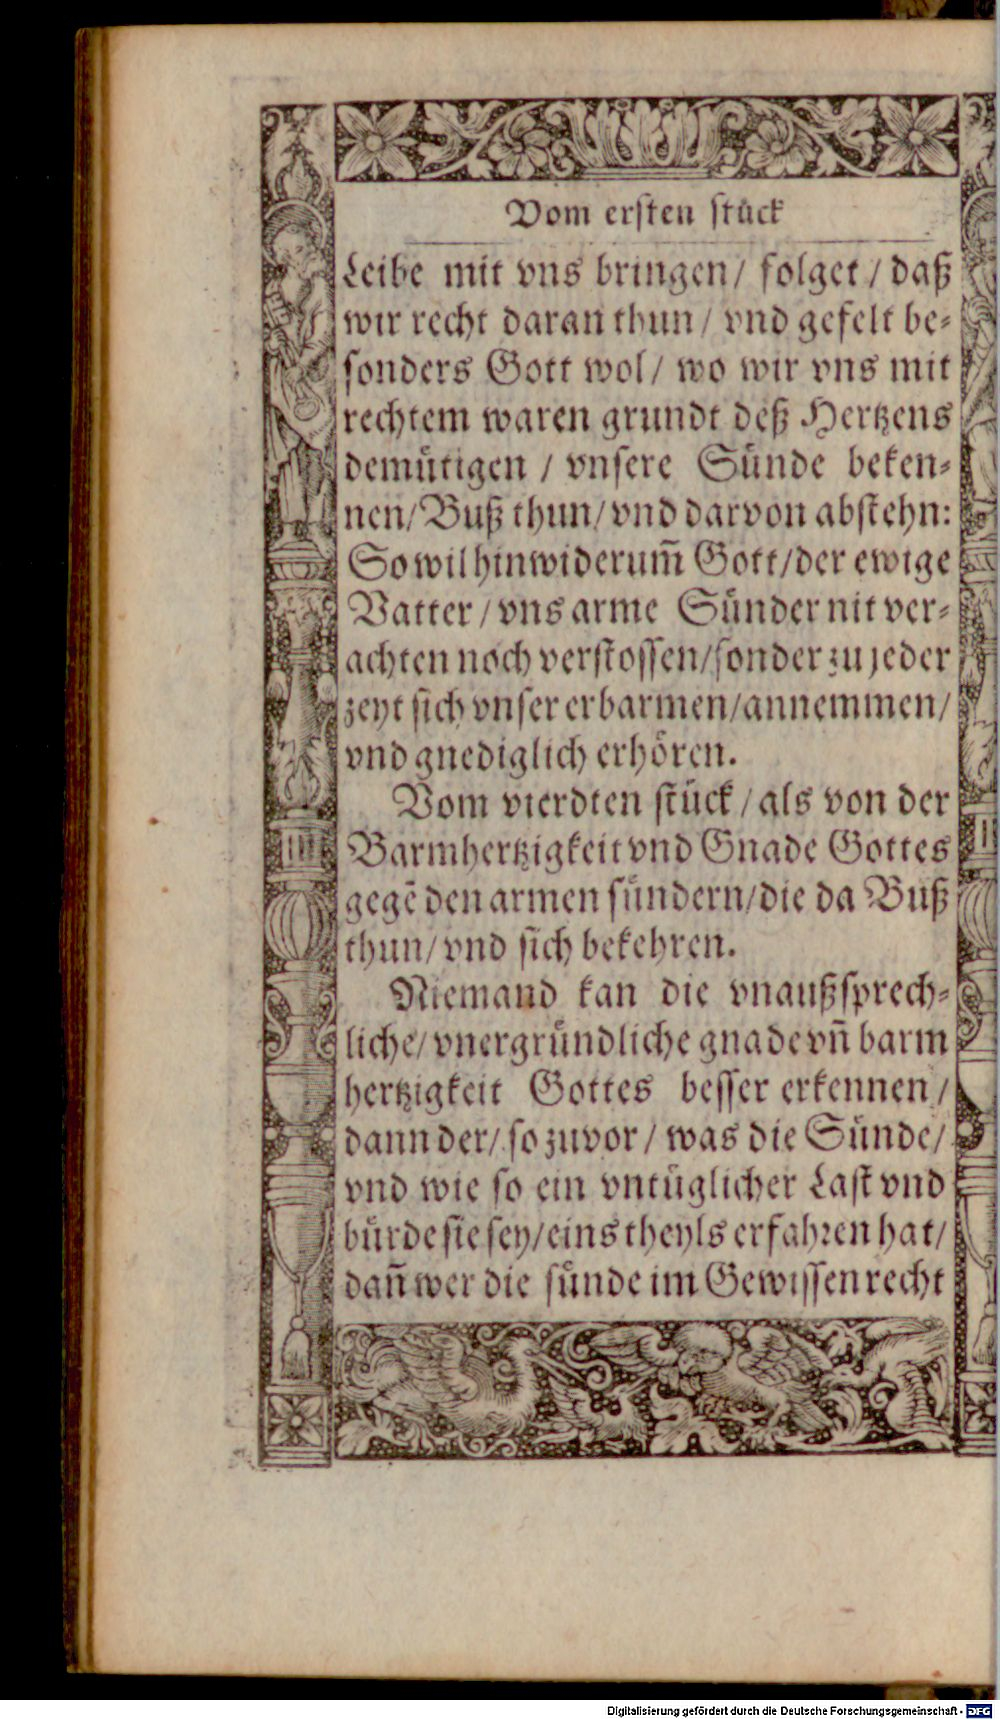 Vom ersten stück
Leibe mit vns bringen/ folget/ daß
wir recht daran thun/ vnd gefelt be⸗
sonders Gott wol/ wo wir vns mit
rechtem waren grundt deß Hertzens
demütigen / vnsere Sünde beken⸗
nen/ Buß thun/ vnd darvon abstehn:
So wil hinwiderum̃ Gott/ der ewige
Vatter/ vns arme Sünder nit ver⸗
achten noch verstossen/ sonder zu jeder
zeyt sich vnser erbarmen/ annemmen/
vnd gnediglich erhören.
Vom vierdten stück/ als von der
Barmhertzigkeit vnd Gnade Gottes
gegẽ den armen sündern/ die da Buß
thun/ vnd sich bekehren.
Niemand kan die vnaußsprech⸗
liche/ vnergründliche gnade vñ barm
hertzigkeit Gottes besser erkennen/
dann der/ so zuvor/ was die Sünde/
vnd wie so ein vntüglicher Last vnd
bürde sie sey/ eins theyls erfahren hat/
dañ wer die sünde im Gewissen recht
Digitalisierung gefördert durch die Deutsche Forschungsgemeinschaft - DFG